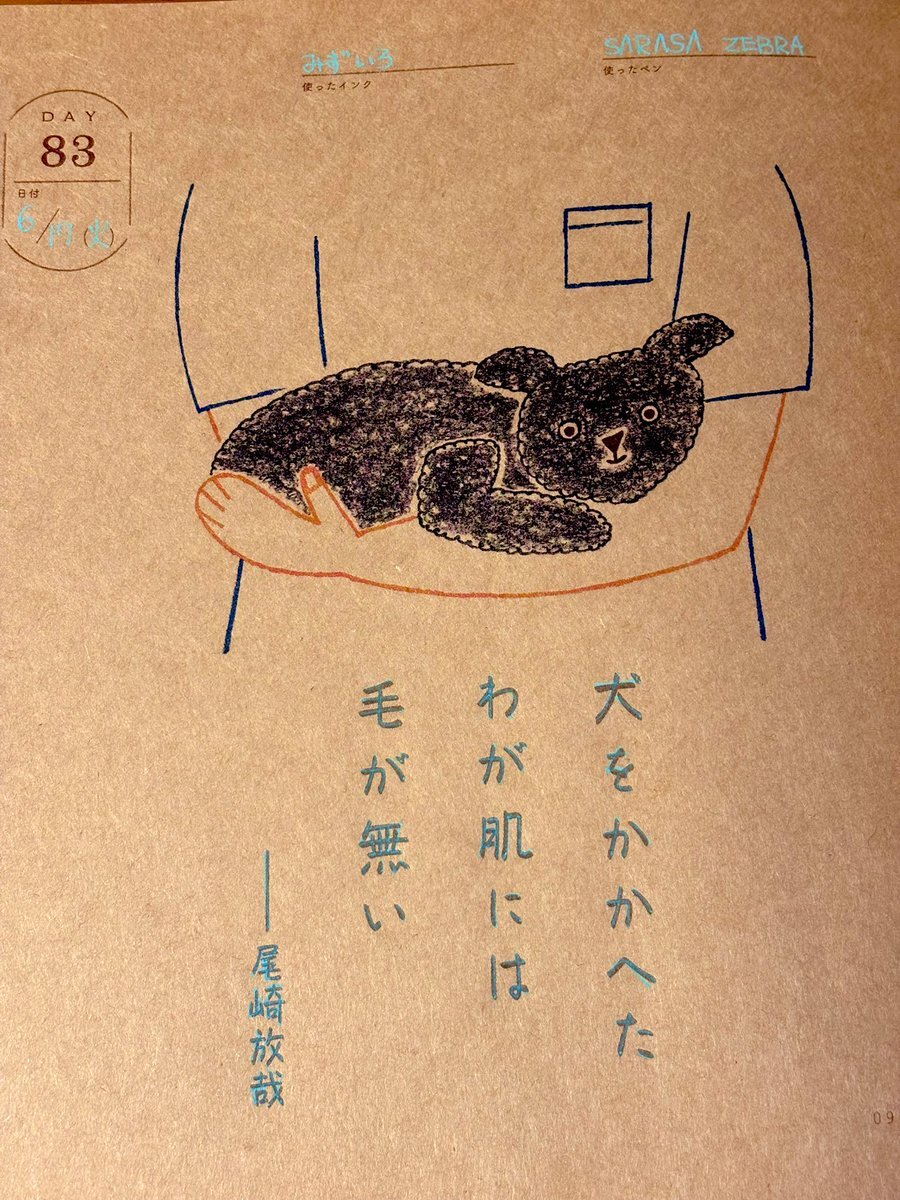 みずいろ
使ったインク
SARASA ZEBRA
使ったペン
DAY
83
日付
6/17(火)
犬をかかへた
わが肌には
毛が無い
——尾崎放哉
09